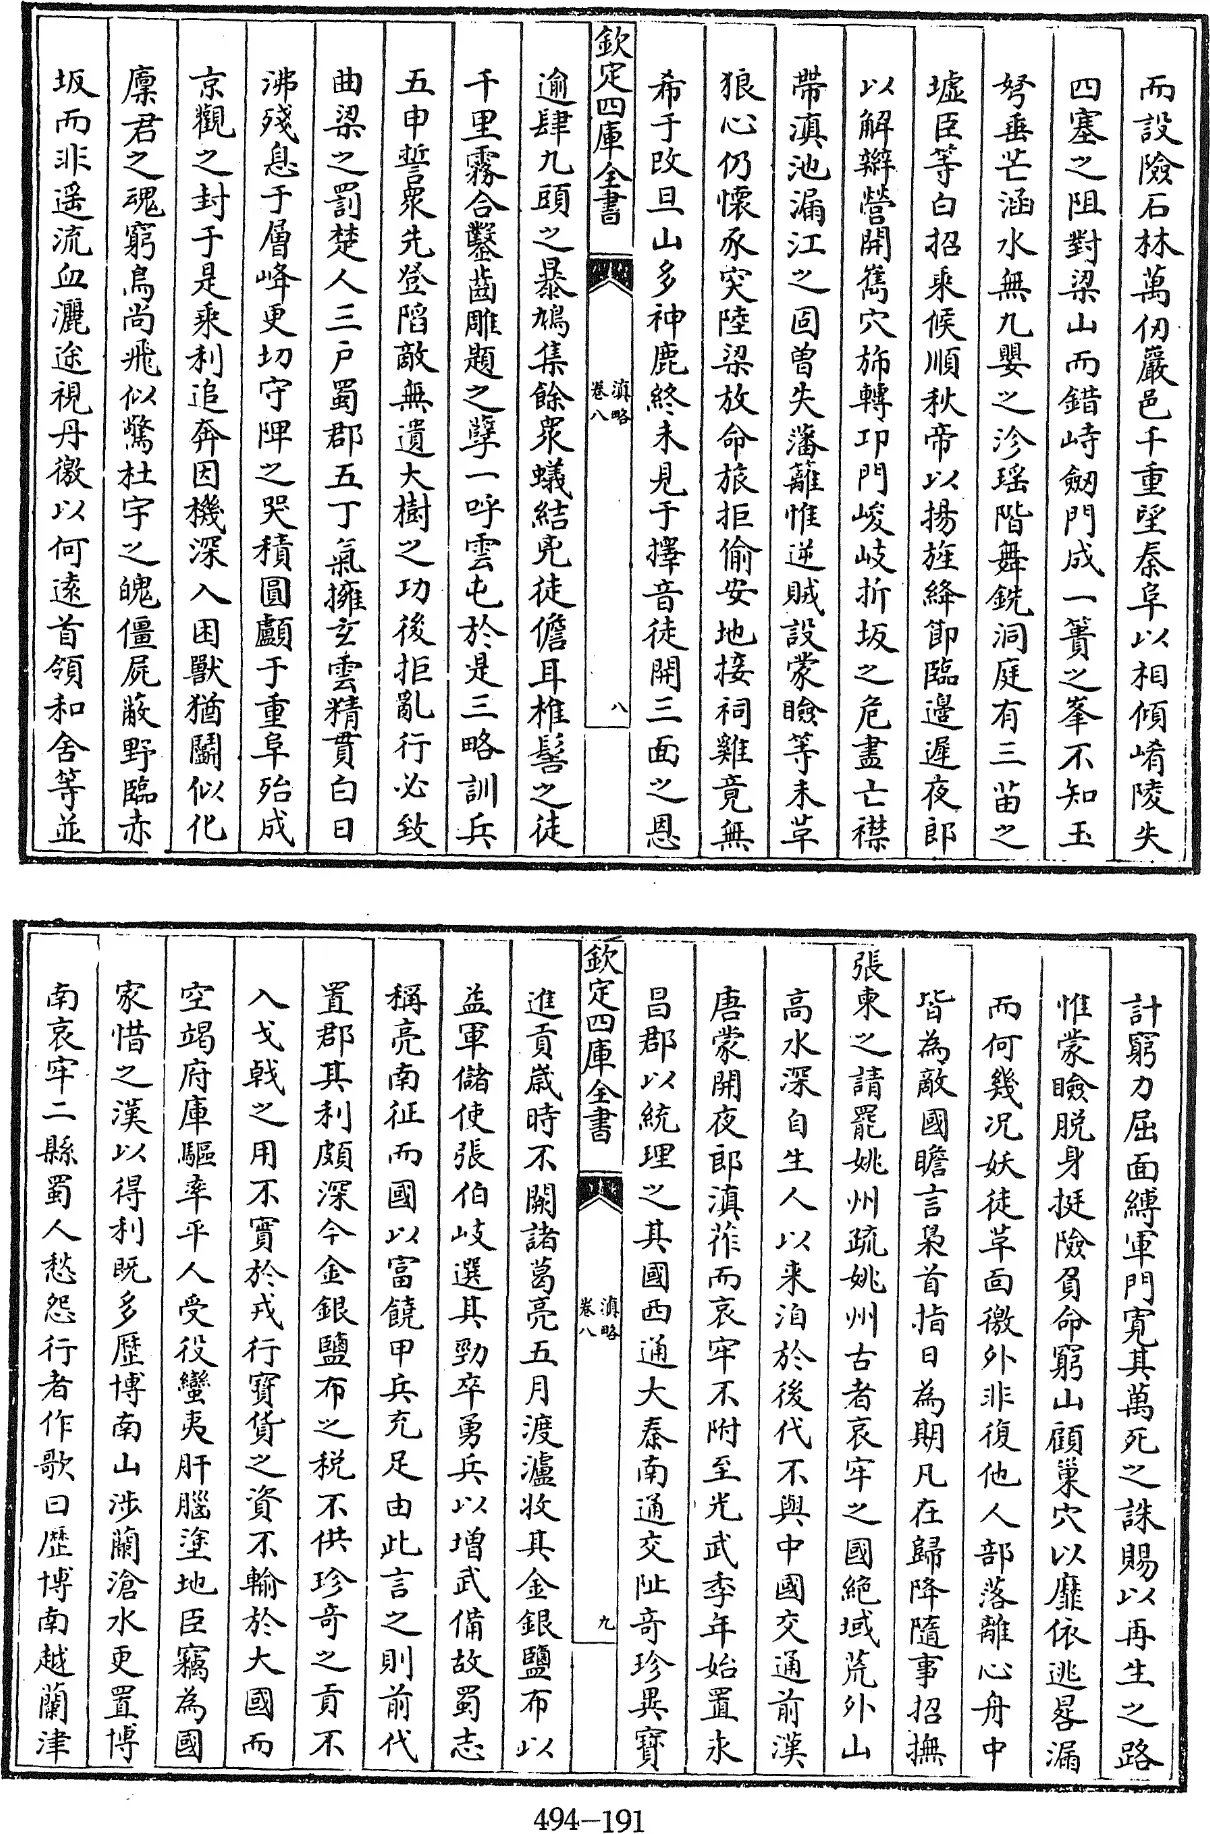 而設險石林萬仞巖邑千重堅秦阜以相傾崤陵失
四塞之阻對梁山而錯峙劔門成一簣之峯不知玉
弩垂芒涵水無九嬰之沴瑶階舞銑洞庭有三苗之
墟臣等白招乘候順秋帝以揚旌絳節臨邊遲夜郎
以解辮營開嶲穴斾轉邛門峻岐折坂之危盡亡襟
帶滇池漏江之固曽失藩籬惟逆賊設蒙瞼等未草
狼心仍懷豕突陸梁放命旅拒偷安地接祠雞竟無
希于改旦山多神鹿終未見于擇音徒開三面之恩
欽定四庫全書
滇略
卷八
八
逾肆九頭之暴鳩集餘衆蟻結兇徒儋耳椎髻之徒
千里霧合鑿齒雕題之孽一呼雲屯於是三略訓兵
五申誓衆先登陷敵無遺大樹之功後拒亂行必致
曲梁之罰楚人三户蜀郡五丁氣擁玄雲精貫白日
沸殘息于層峰更切守陴之哭積圓顱于重阜殆成
京觀之封于是乘利追奔因機深入困獸猶鬭似化
廩君之魂窮鳥尚飛似驚杜宇之魄僵屍蔽野臨赤
坂而非遥流血灑途視丹徼以何遠首領和舍等並
計窮力屈面縛軍門寛其萬死之誅賜以再生之路
惟蒙瞼脱身挺險負命窮山顧巢穴以靡依逃晷漏
而何幾况妖徒革面徼外非復他人部落離心舟中
皆為敵國瞻言梟首指日為期凡在歸降隨事招撫
張柬之請罷姚州疏姚州古者哀牢之國絶域荒外山
高水深自生人以来洎於後代不與中國交通前漢
唐蒙開夜郎滇莋而哀牢不附至光武季年始置永
昌郡以統理之其國西通大秦南通交阯奇珍異寳
欽定四庫全書
滇略
卷八
九
進貢嵗時不闕諸葛亮五月渡瀘收其金銀鹽布以
益軍儲使張伯岐選其勁卒勇兵以增武備故蜀志
稱亮南征而國以富饒甲兵充足由此言之則前代
置郡其利頗深今金銀鹽布之税不供珍奇之貢不
入戈戟之用不實於戎行寳貨之資不輸於大國而
空竭府庫驅率平人受役蠻夷肝腦塗地臣竊為國
家惜之漢以得利既多歴博南山涉蘭滄水更置博
南哀牢二縣蜀人愁怨行者作歌曰歴博南越蘭津
494-191